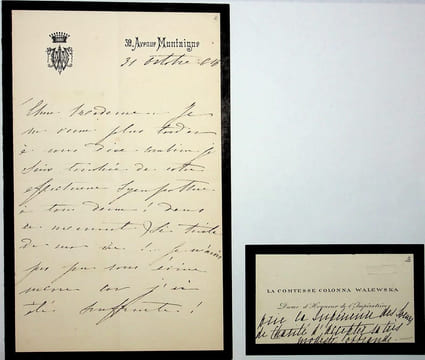 39, Avenue Montaigne
31 octobre 04
Chère Madame. Je
ne veux plus tarder
à vous dire combien je
suis touchée de votre
affectueuse sympathie
à tous deux ! dans
ce moment si triste
de ma vie !.. je n'avais
pas pu vous écrire
même car j'ai
été souffrante !
LA COMTESSE COLONNA WALEWSKA
Dame d'Honneur de l'Impératrice
prie la Supérieure des Sœurs
de Charité d'accepter
modeste offrande